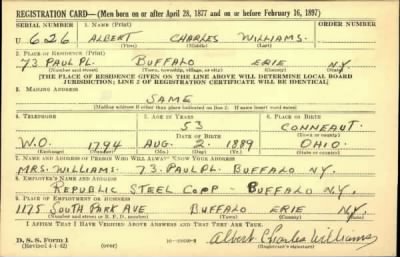 REGISTRATION CARD—(Men born on or after April 28, 1877 and on or before February 16, 1897)
SERIAL NUMBER 1. NAME (Print) ORDER NUMBER
U 626 ALBERT CHARLES WILLIAMS.
(First) (Middle) (Last)
2. PLACE OF RESIDENCE (Print)
73 PAUL PL. BUFFALO ERIE NY
(Number and street) (Town, township, village, or city) (County) (State)
[THE PLACE OF RESIDENCE GIVEN ON THE LINE ABOVE WILL DETERMINE LOCAL BOARD
JURISDICTION; LINE 2 OF REGISTRATION CERTIFICATE WILL BE IDENTICAL]
3. MAILING ADDRESS
SAME
(Mailing address if other than place indicated on line 2. If same insert word same)
4. TELEPHONE 5. AGE IN YEARS 6. PLACE OF BIRTH
53 CONNEAUT.
DATE OF BIRTH (Town or county)
W.O. 1794 AUG. 2. 1889 OHIO.
(Exchange) (Number) (Mo.) (Day) (Yr.) (State or country)
7. NAME AND ADDRESS OF PERSON WHO WILL ALWAYS KNOW YOUR ADDRESS
MRS. WILLIAMS. 73. PAUL PL. BUFFALO NY.
8. EMPLOYER'S NAME AND ADDRESS
REPUBLIC STEEL CORP - BUFFALO N.Y.
9. PLACE OF EMPLOYMENT OR BUSINESS
1175 SOUTH PARK AVE BUFFALO ERIE NY.
(Number and street or R. F. D. number) (Town) (County) (State)
I AFFIRM THAT I HAVE VERIFIED ABOVE ANSWERS AND THAT THEY ARE TRUE.
D. S. S. Form 1
(Revised 4-1-42) (over) Albert Charles Williams
(Registrant's signature)